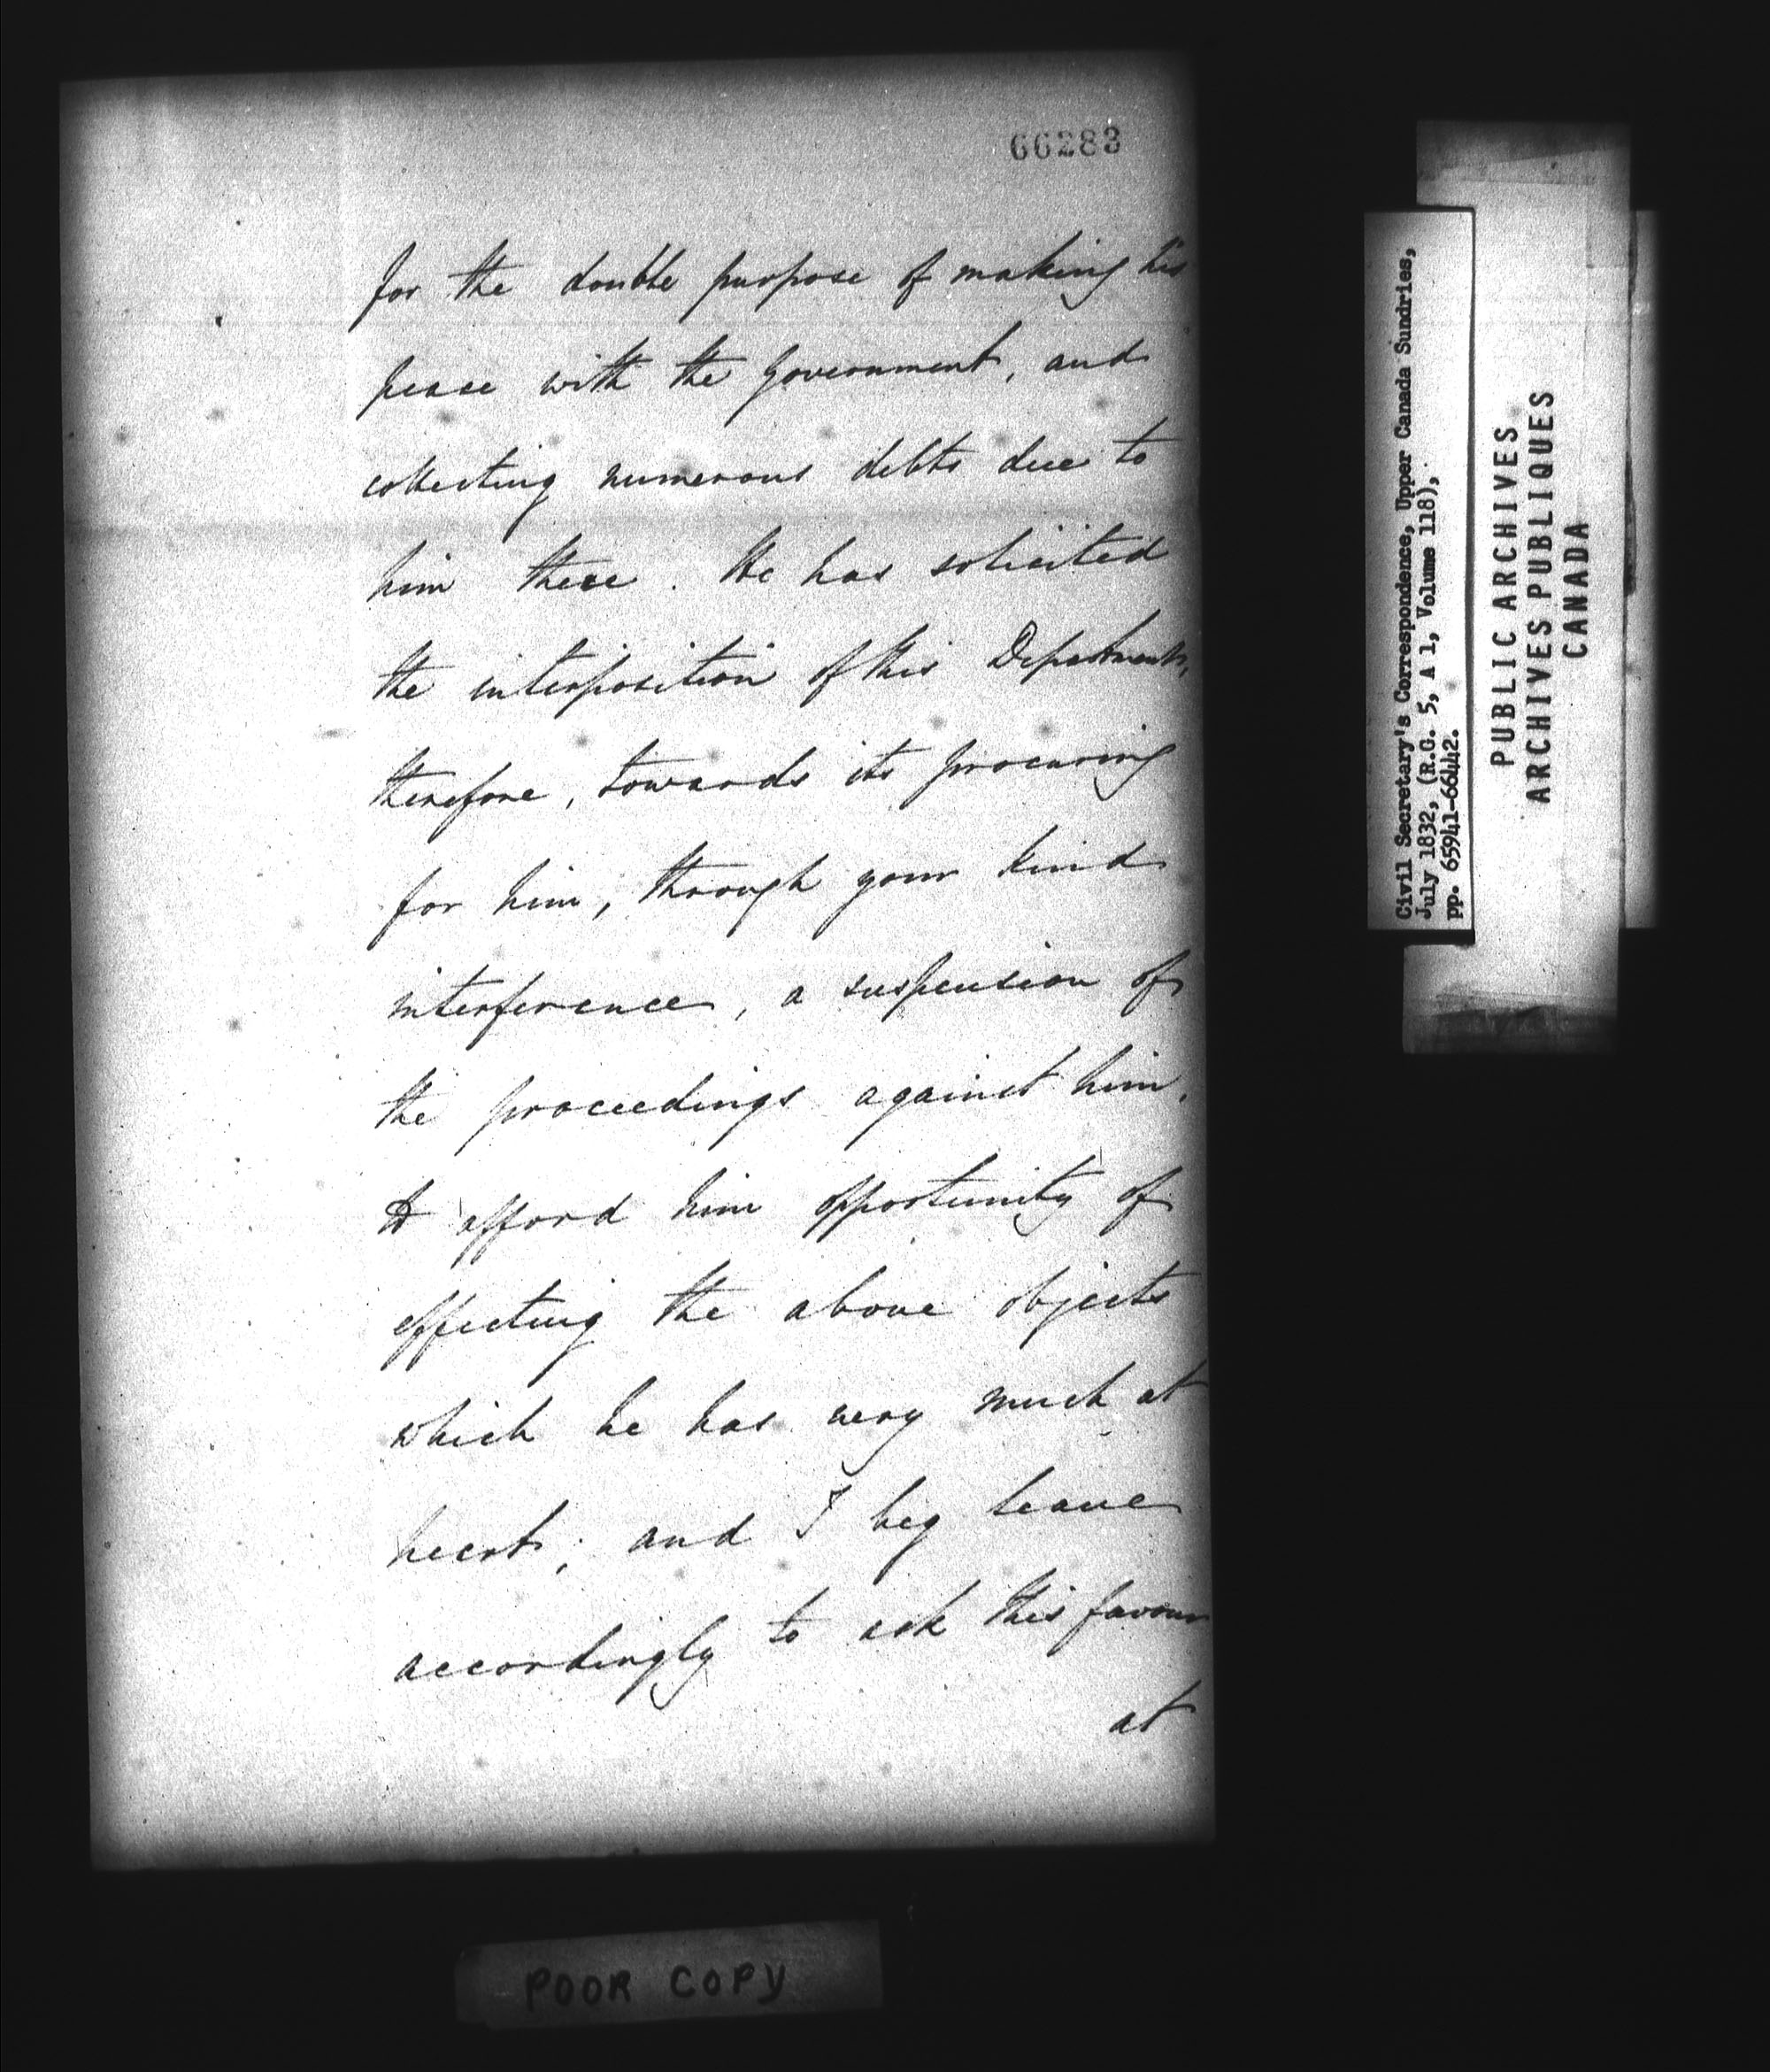 66283
for the double purpose of making his
peace with the Government, and
collecting numerous debts due to
him there. He has solicited
the interposition of this Department,
therefore, towards its procuring
for him, through your kind
interference, a suspension of
the proceedings against him,
to afford him opportunity of
effecting the above objects
which he has very much at
heart; and I beg leave
accordingly to ask this favour
at
Civil Secretary's Correspondence, Upper Canada Sundries,
July 1832, (R.G. 5, A 1, Volume 118),
pp. 65941-66442.
PUBLIC ARCHIVES
ARCHIVES PUBLIQUES
CANADA
POOR COPY